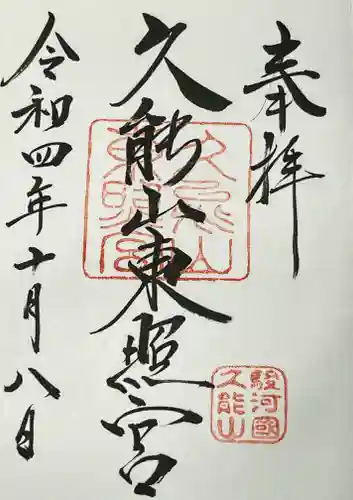 奉拝
久能山東照宮
令和四年十月八日
久能山
東照宮
駿河國
久能山